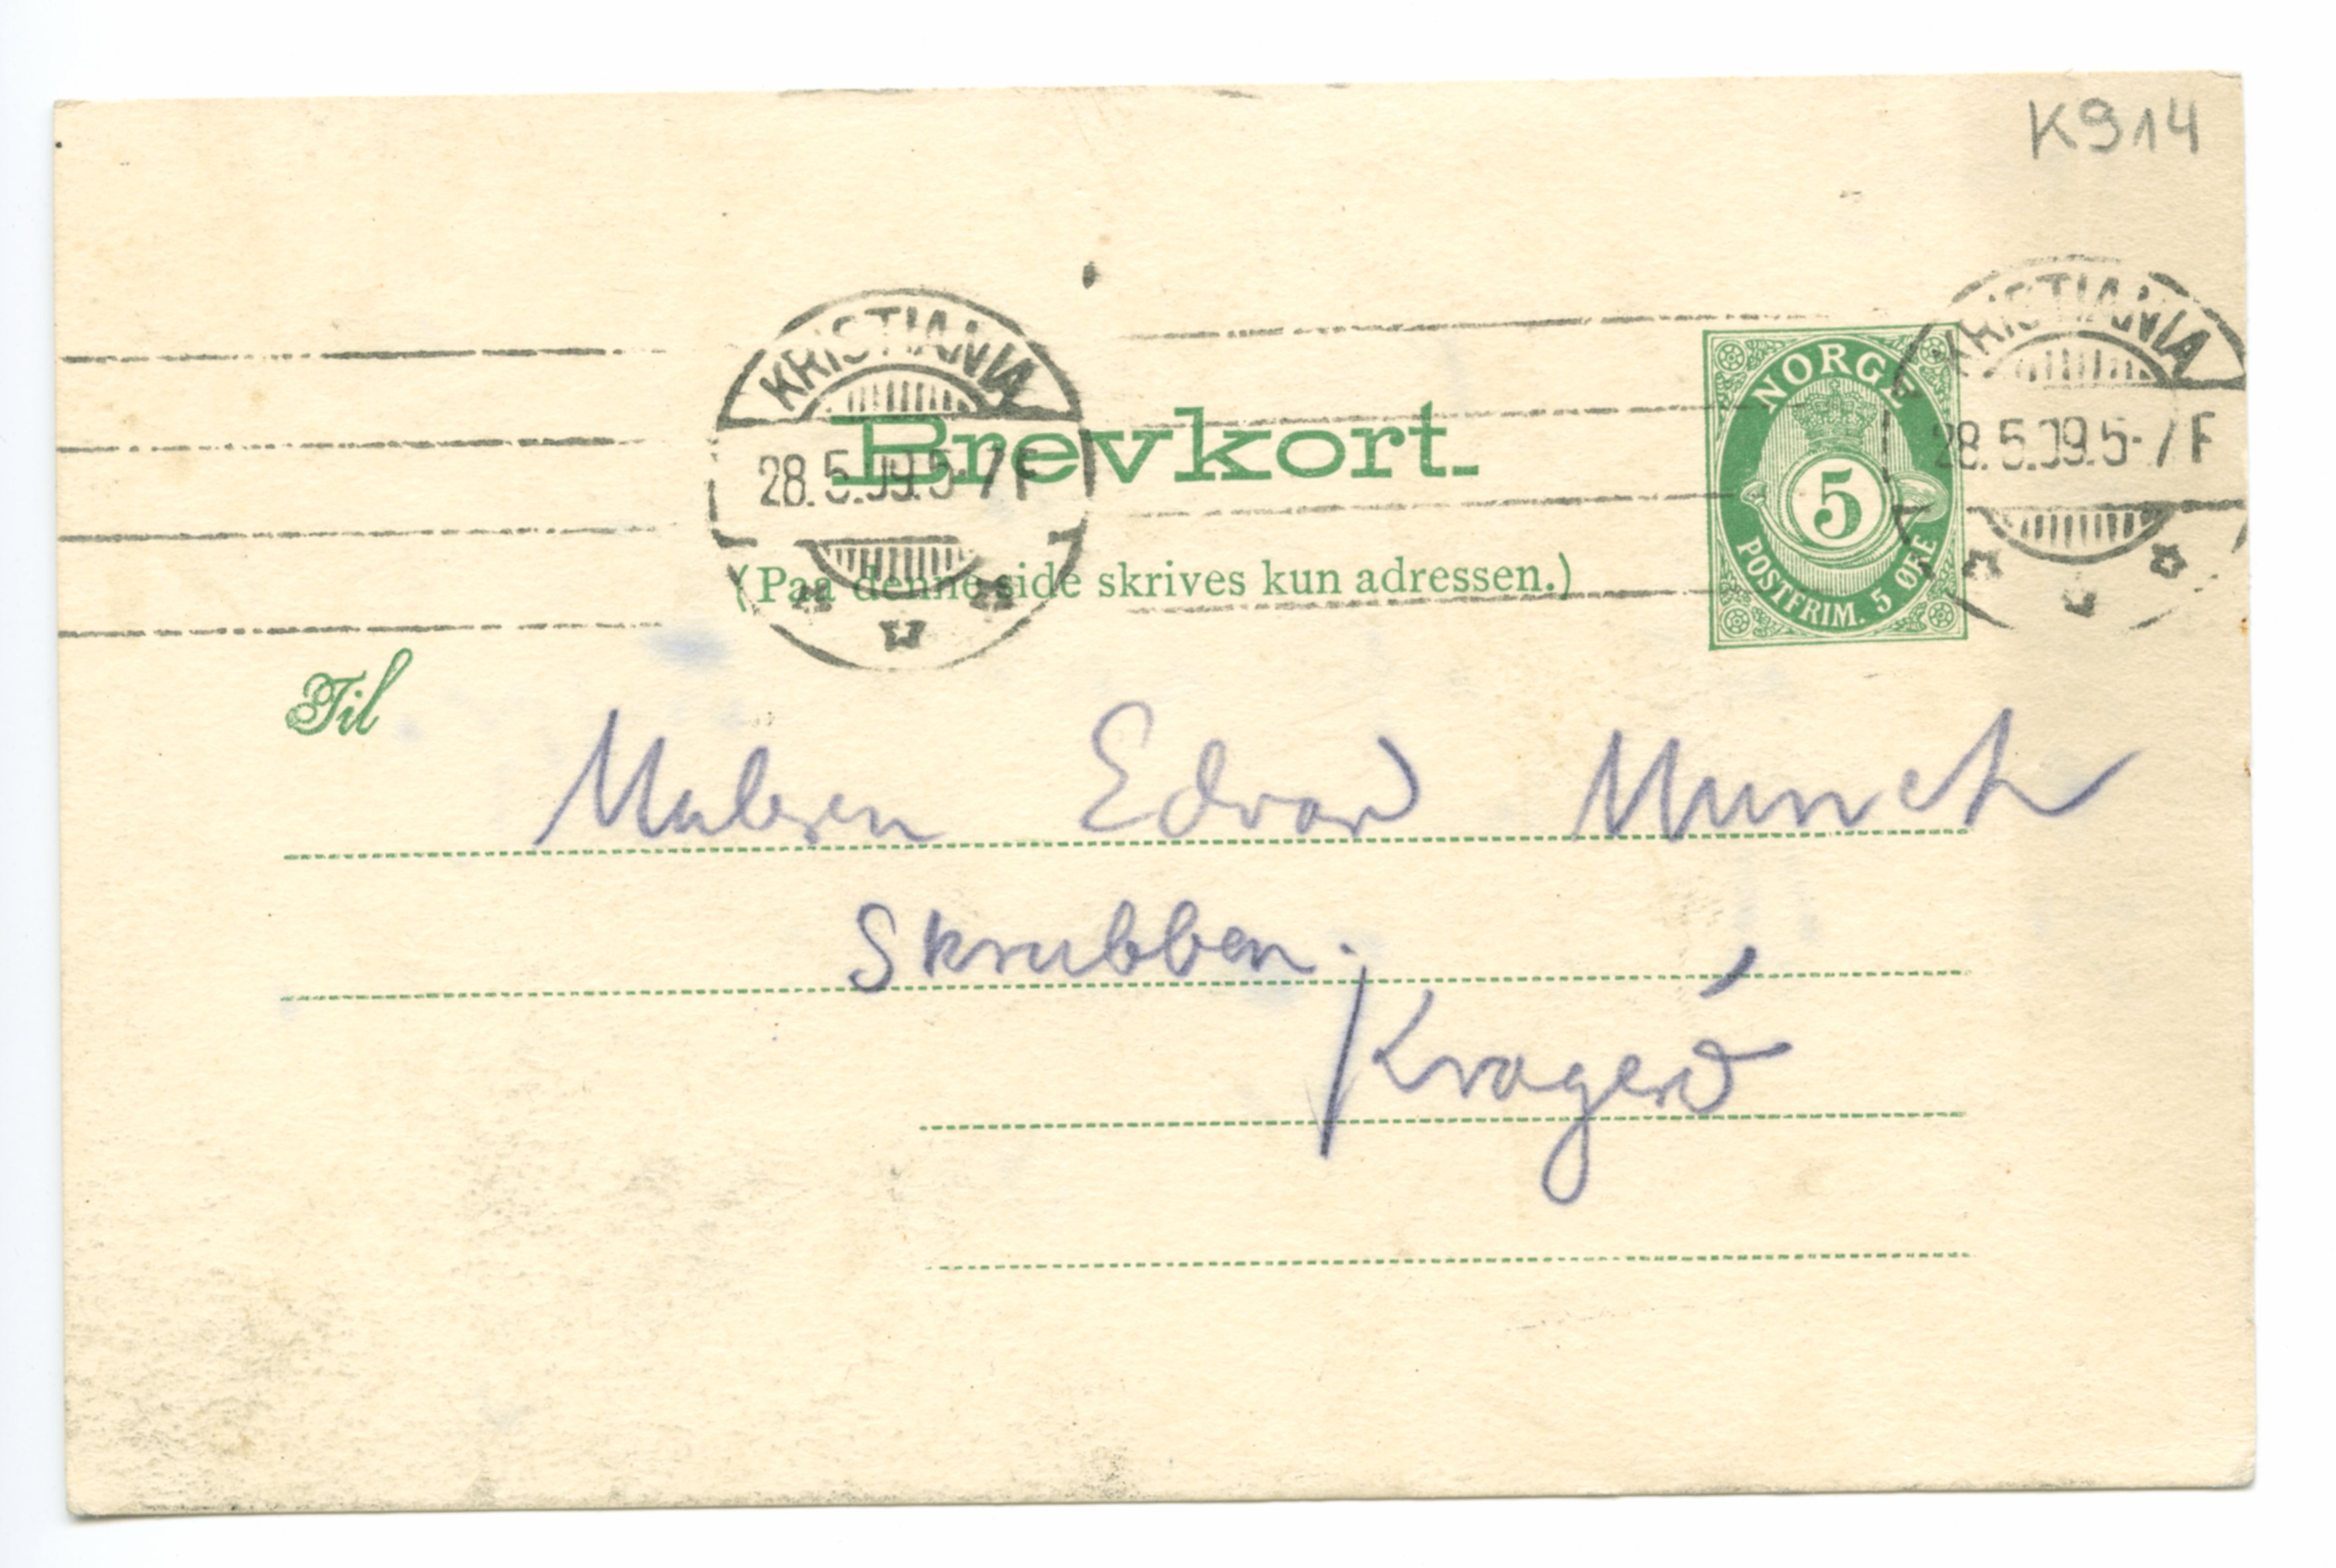 K914
KRISTIANIA
28.5.09.5-7 F
KRISTIANIA
28.5.09.5-7 F
Brevkort.
(Paa denne side skrives kun adressen.)
NORGE
5
POSTFRIM. 5 ØRE
Til
Maleren Edvard Munch
Skrubben.
Kragerö